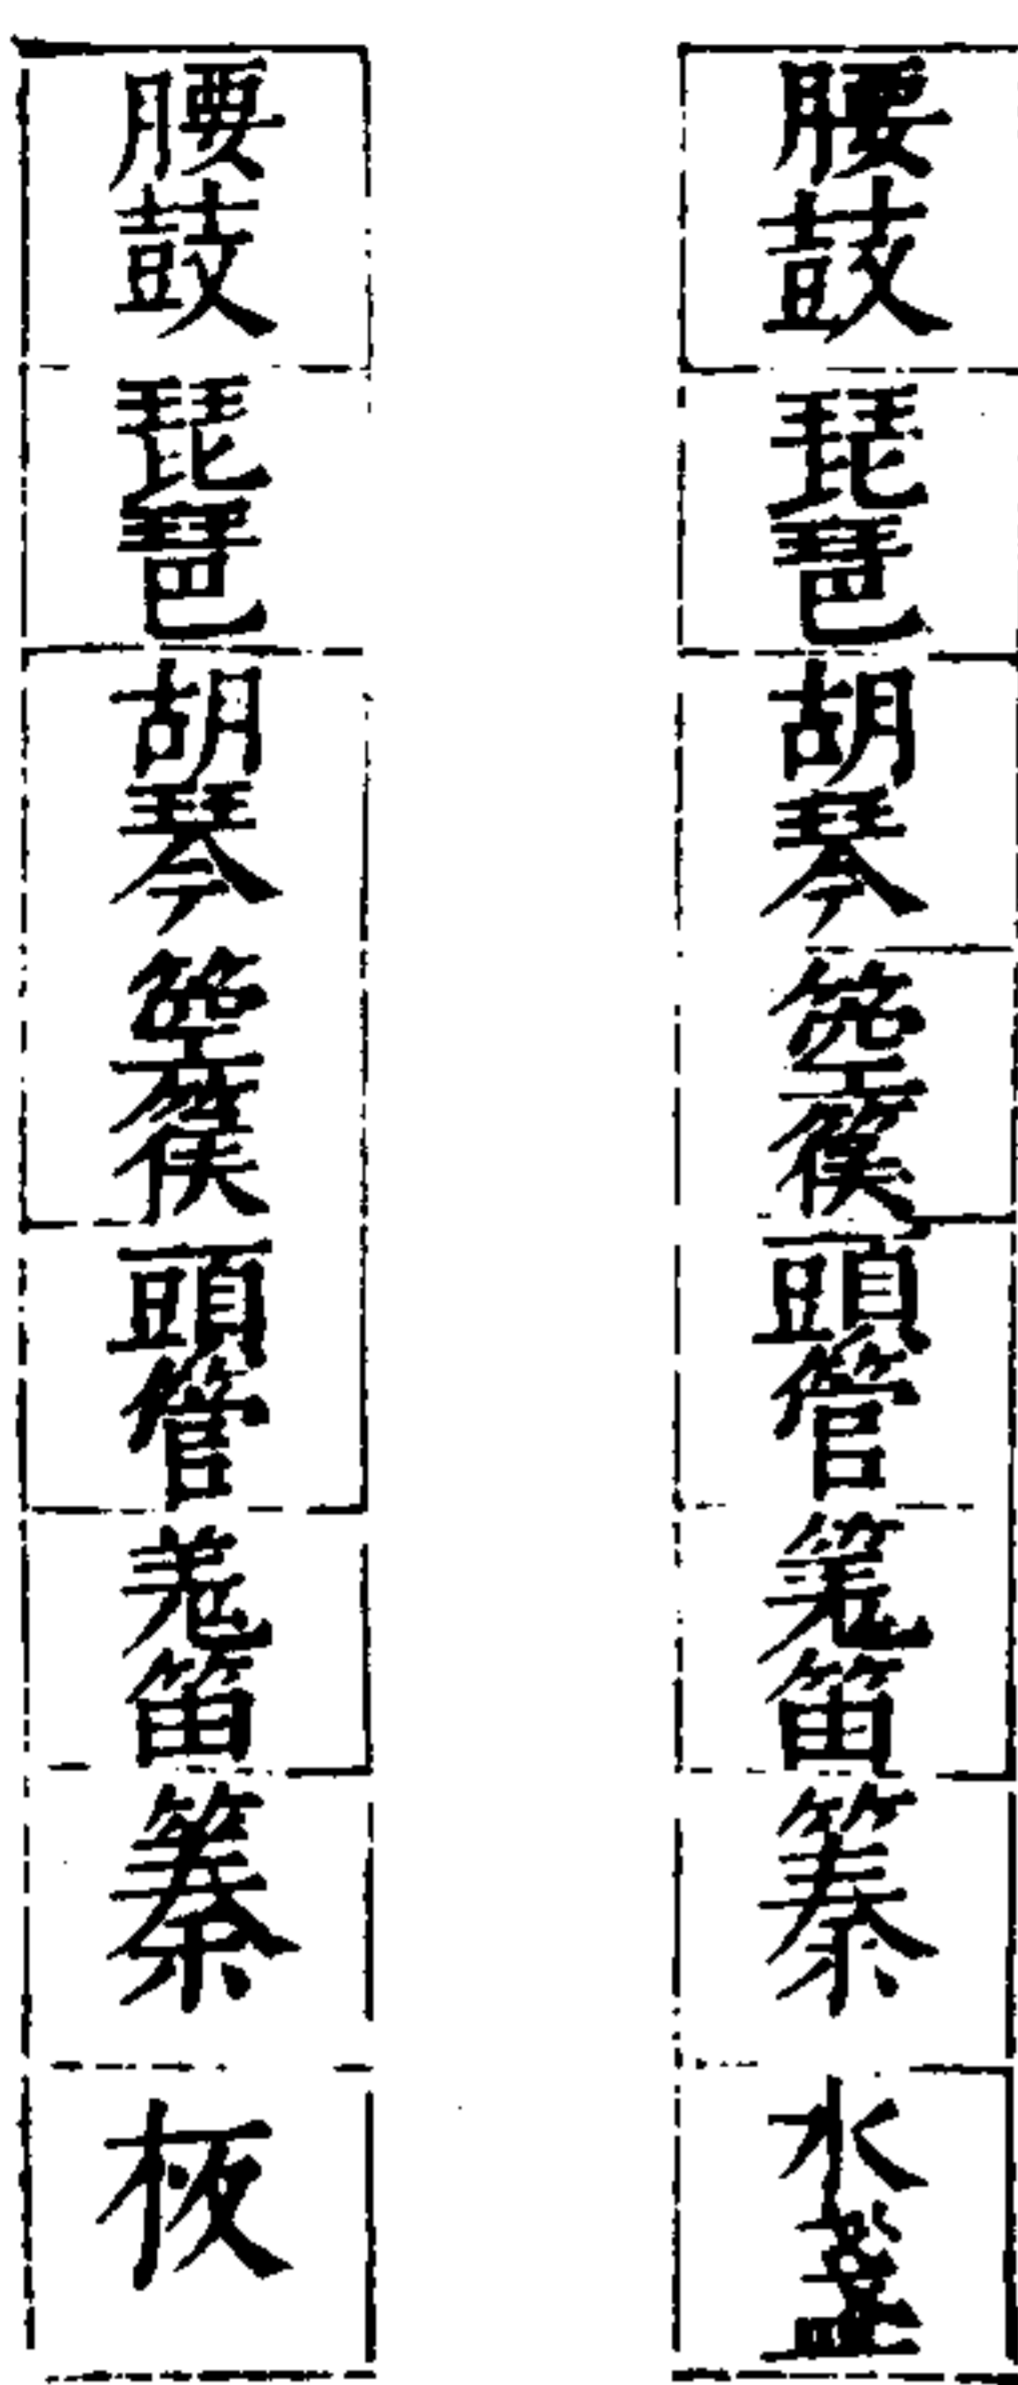 腰鼓
琵琶
胡琴
箜篌
頭管
羗笛
𥱧
水盞
腰鼓
琵琶
胡琴
箜篌
頭管
羗笛
板